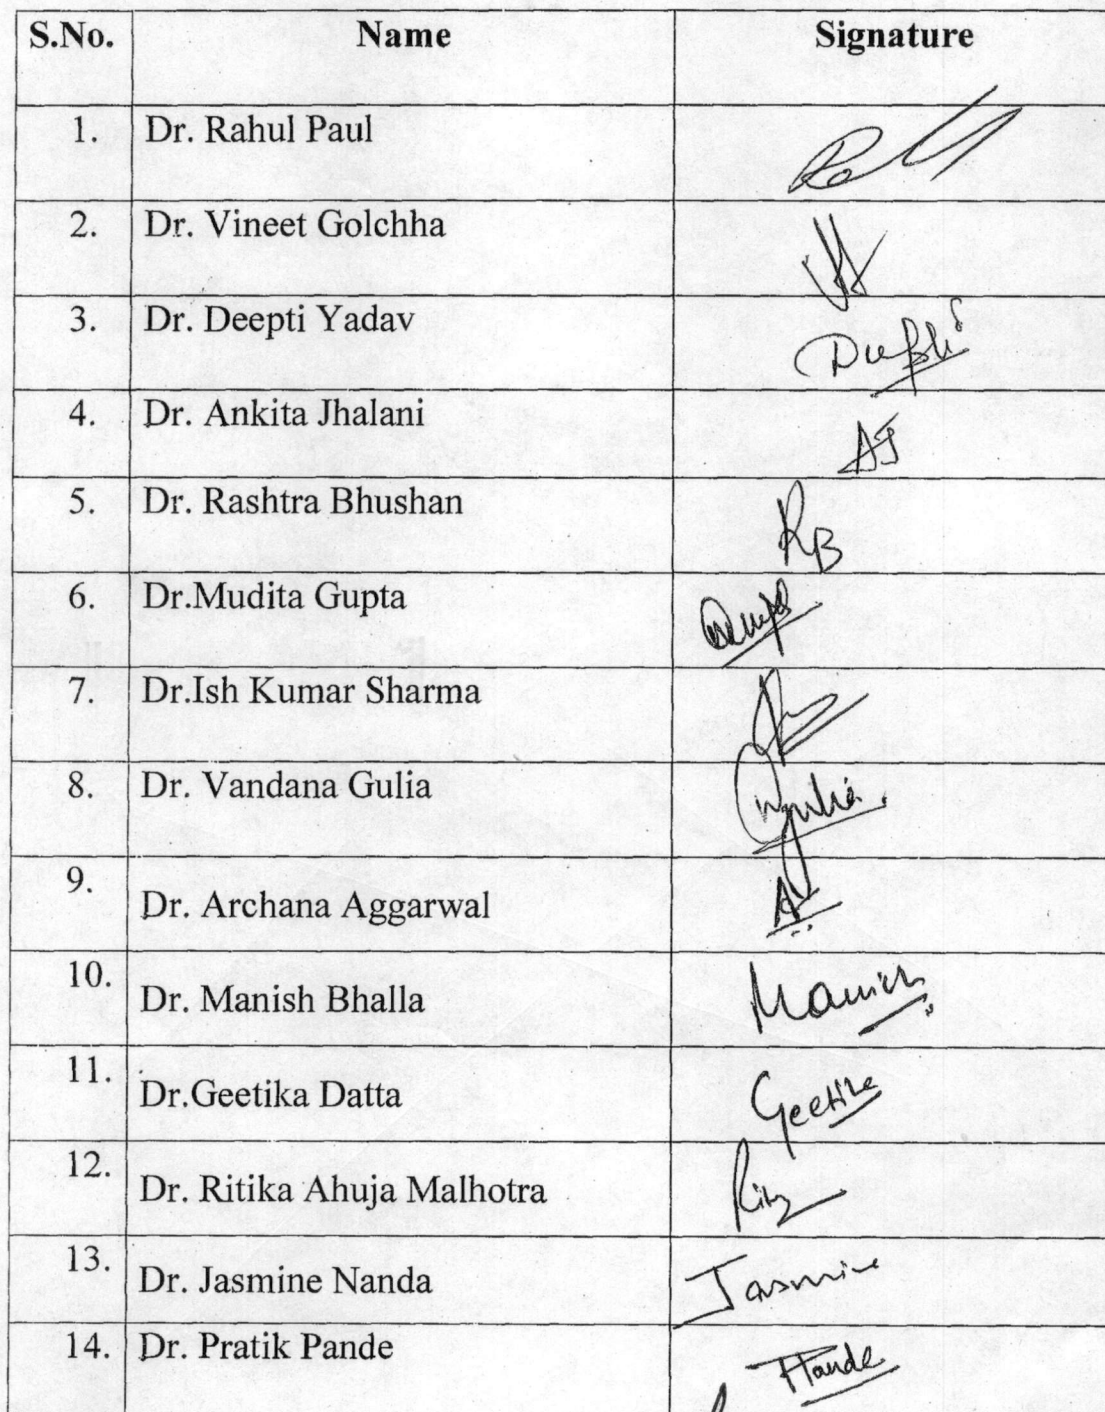 S.No. Name Signature
1. Dr. Rahul Paul
2. Dr. Vineet Golchha
3. Dr. Deepti Yadav Deepti
4. Dr. Ankita Jhalani AJ
5. Dr. Rashtra Bhushan RB
6. Dr.Mudita Gupta
7. Dr.Ish Kumar Sharma
8. Dr. Vandana Gulia
9. Dr. Archana Aggarwal A
10. Dr. Manish Bhalla Manish
11. Dr.Geetika Datta Geetika
12. Dr. Ritika Ahuja Malhotra
13. Dr. Jasmine Nanda Jasmine
14. Dr. Pratik Pande PPande